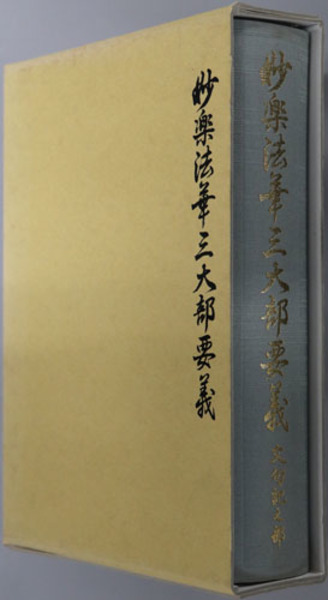 妙楽法華三大部要義
妙楽法華三大部要義
文句記之部